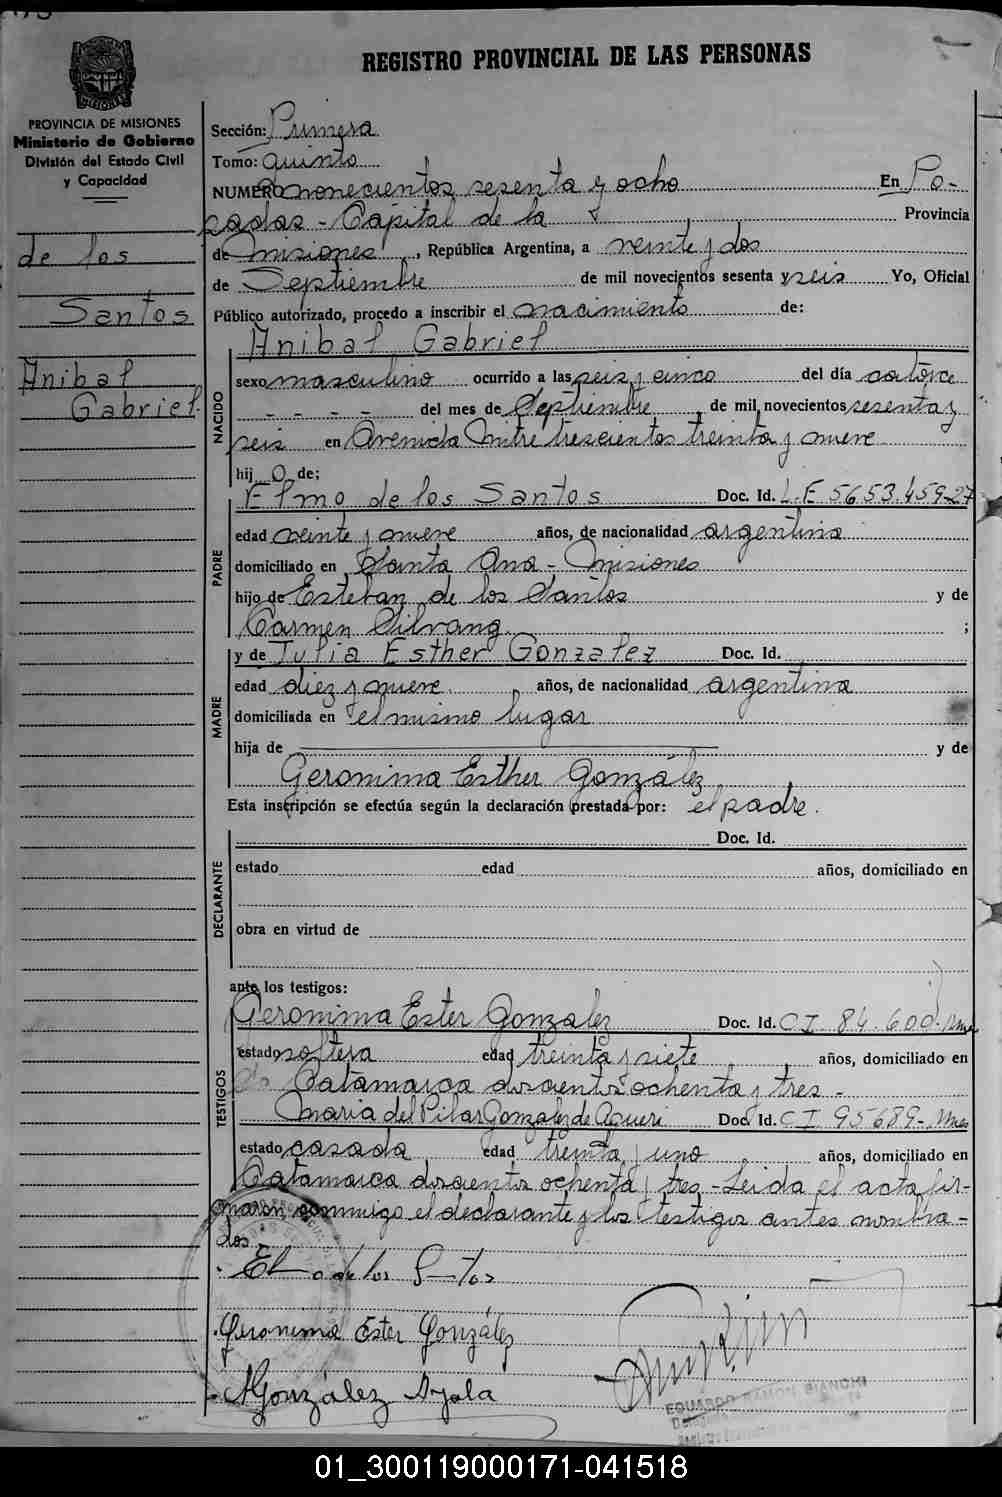 REGISTRO PROVINCIAL DE LAS PERSONAS
PROVINCIA DE MISIONES
Ministerio de Gobierno
División del Estado Civil
y Capacidad
de los
Santos
Anibal
Gabriel.
Sección: Primera
Tomo: quinto
NUMERO novecientos sesenta y ocho En Po-
sadas - Capital de la Provincia
de Misiones, República Argentina, a veinte y dos
de Septiembre de mil novecientos sesenta y seis Yo, Oficial
Público autorizado, procedo a inscribir el nacimiento de:
Anibal Gabriel
NACIDO
sexo masculino ocurrido a las seis y cinco del día catorce
- - - - del mes de Septiembre, de mil novecientos sesenta y
seis en Avenida Mitre trescientos treinta y nueve
hij o de;
PADRE
Elmo de los Santos Doc. Id. L.E 5653.459-27
edad veinte y nueve años, de nacionalidad argentina
domiciliado en Santa Ana - Misiones
hijo de Esteban de los Santos y de
Carmen Silvang. ;
MADRE
y de Julia Esther Gonzalez Doc. Id.
edad diez y nueve. años, de nacionalidad argentina
domiciliada en el mismo lugar
hija de y de
Geronima Esther González
Esta inscripción se efectúa según la declaración prestada por: el padre.
DECLARANTE
Doc. Id.
estado edad años, domiciliado en
obra en virtud de
ante los testigos:
TESTIGOS
Geronima Ester Gonzalez Doc. Id. CI. 84.600. Mnes
estado soltera edad treinta y siete años, domiciliado en
Catamarca doscientos ochenta y tres -
Maria del Pilar Gonzalez de Agueri Doc. Id. CI 95689- Mnes
estado casada edad treinta y uno años, domiciliado en
Catamarca doscientos ochenta y tres - Leida el acta fir-
maron conmigo el declarante y los testigos antes nombra-
dos
El o de los Santos
Geronima Ester González
MGonzález Ayala
EDUARDO RAMON BIANCHI
01_300119000171-041518